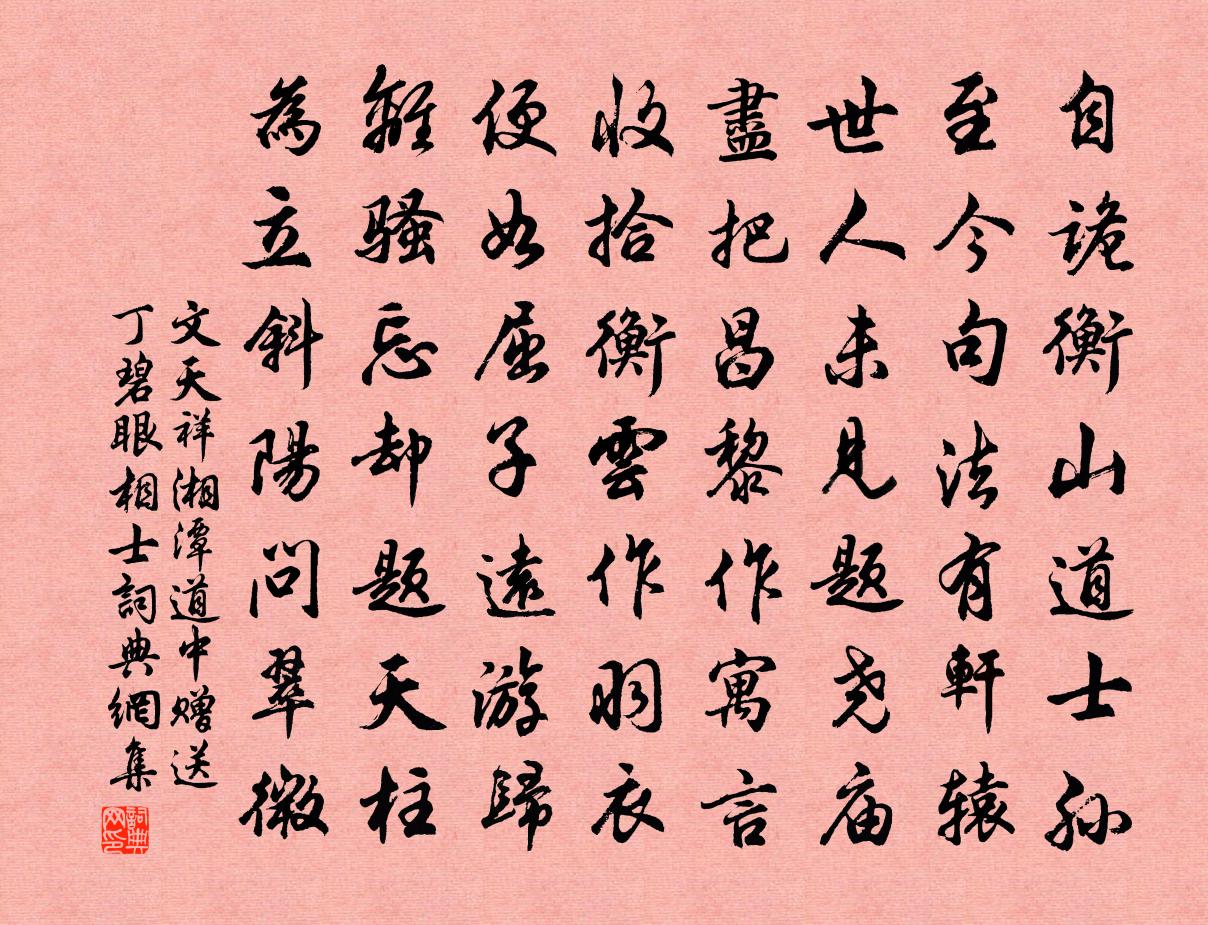 自詭衡山道士孫
至今句法有軒辕
世人未見題尧庙
盡把昌黎作寓言
收拾衡雲作羽衣
便如屈子遠游歸
離騷忘却題天柱
為立斜陽問翠微
文天祥湘潭道中赠送
丁碧眼相士詞典網集
詞典网印